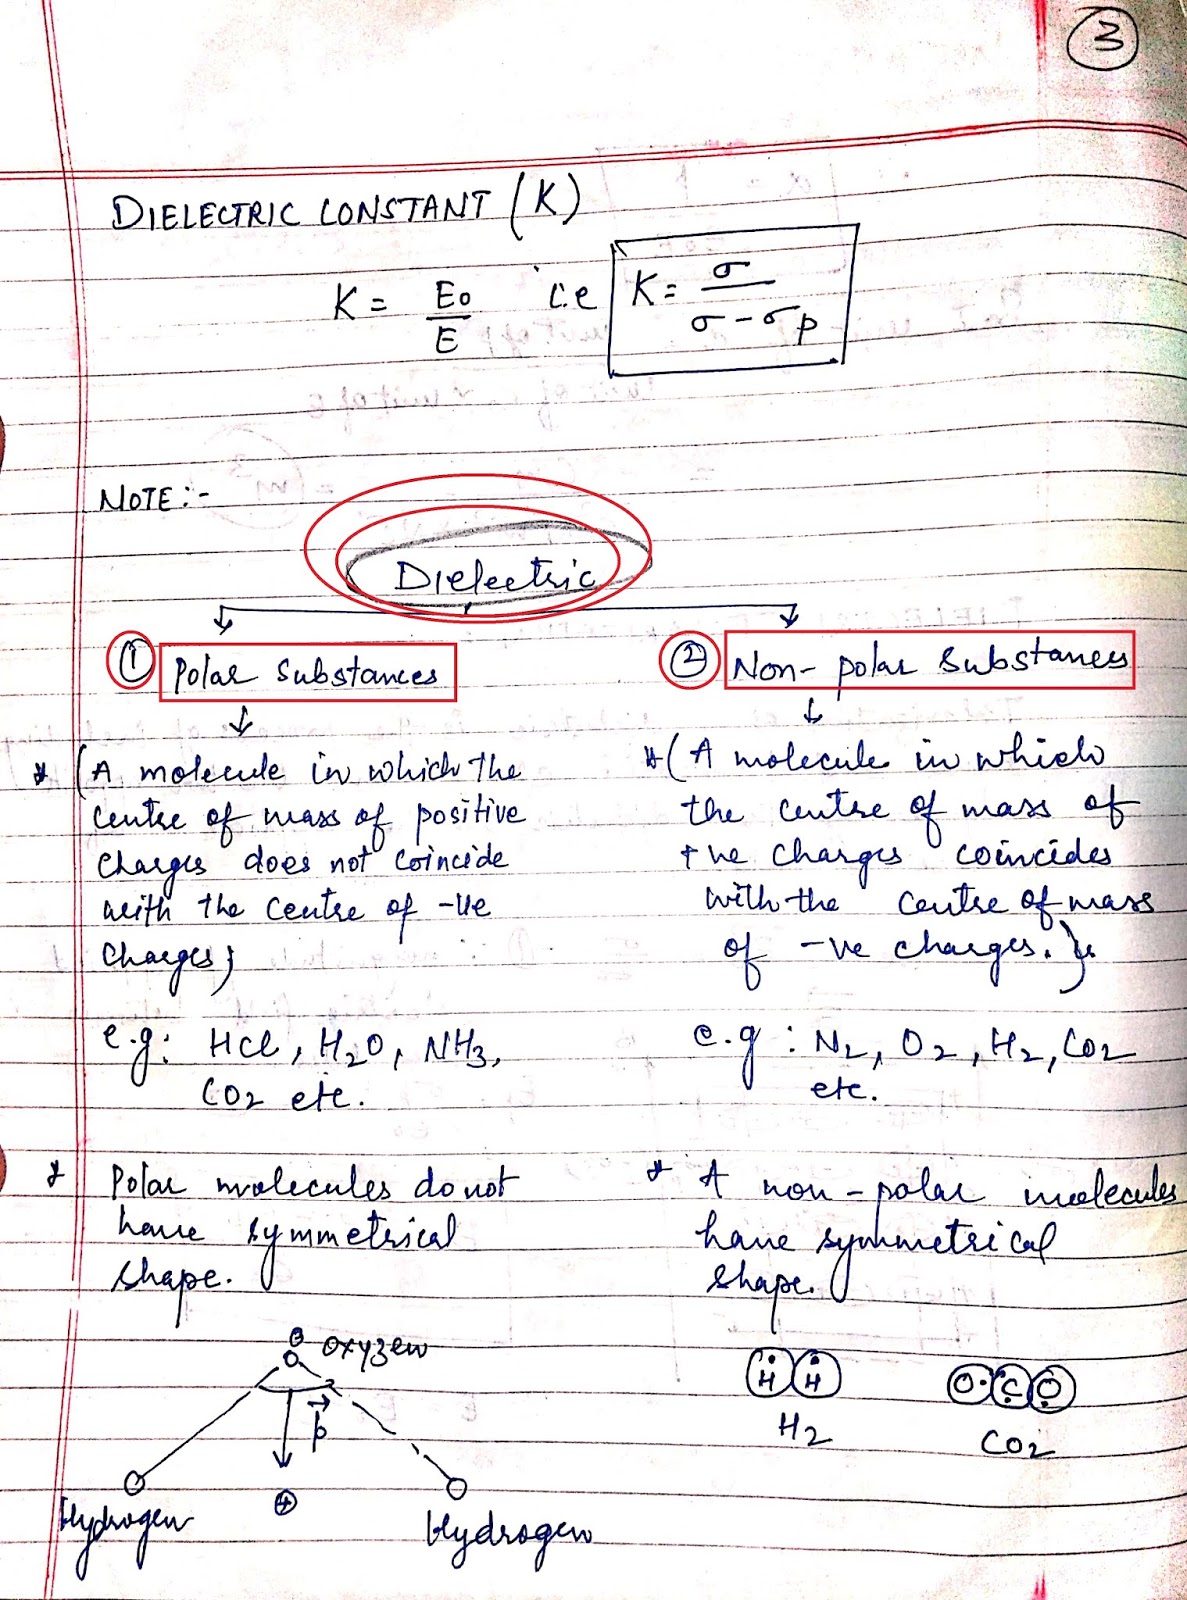 3
DIELECTRIC CONSTANT (K)
K = E0/E i.e K = σ/(σ - σp)
NOTE :-
Dielectric
① Polar Substances
② Non-polar Substances
* (A molecule in which the
centre of mass of positive
charges does not coincide
with the centre of -ve
charges}
e.g: HCl, H2O, NH3,
CO2 etc.
* Polar molecules do not
have symmetrical
shape.
⊖ oxygen
p⃗
⊕
Hydrogen
Hydrogen
* (A molecule in which
the centre of mass of
+ve charges coincides
with the centre of mass
of -ve charges.}
e.g : N2, O2, H2, CO2
etc.
* A non-polar molecules
have symmetrical
shape.
H H
H2
O C O
CO2